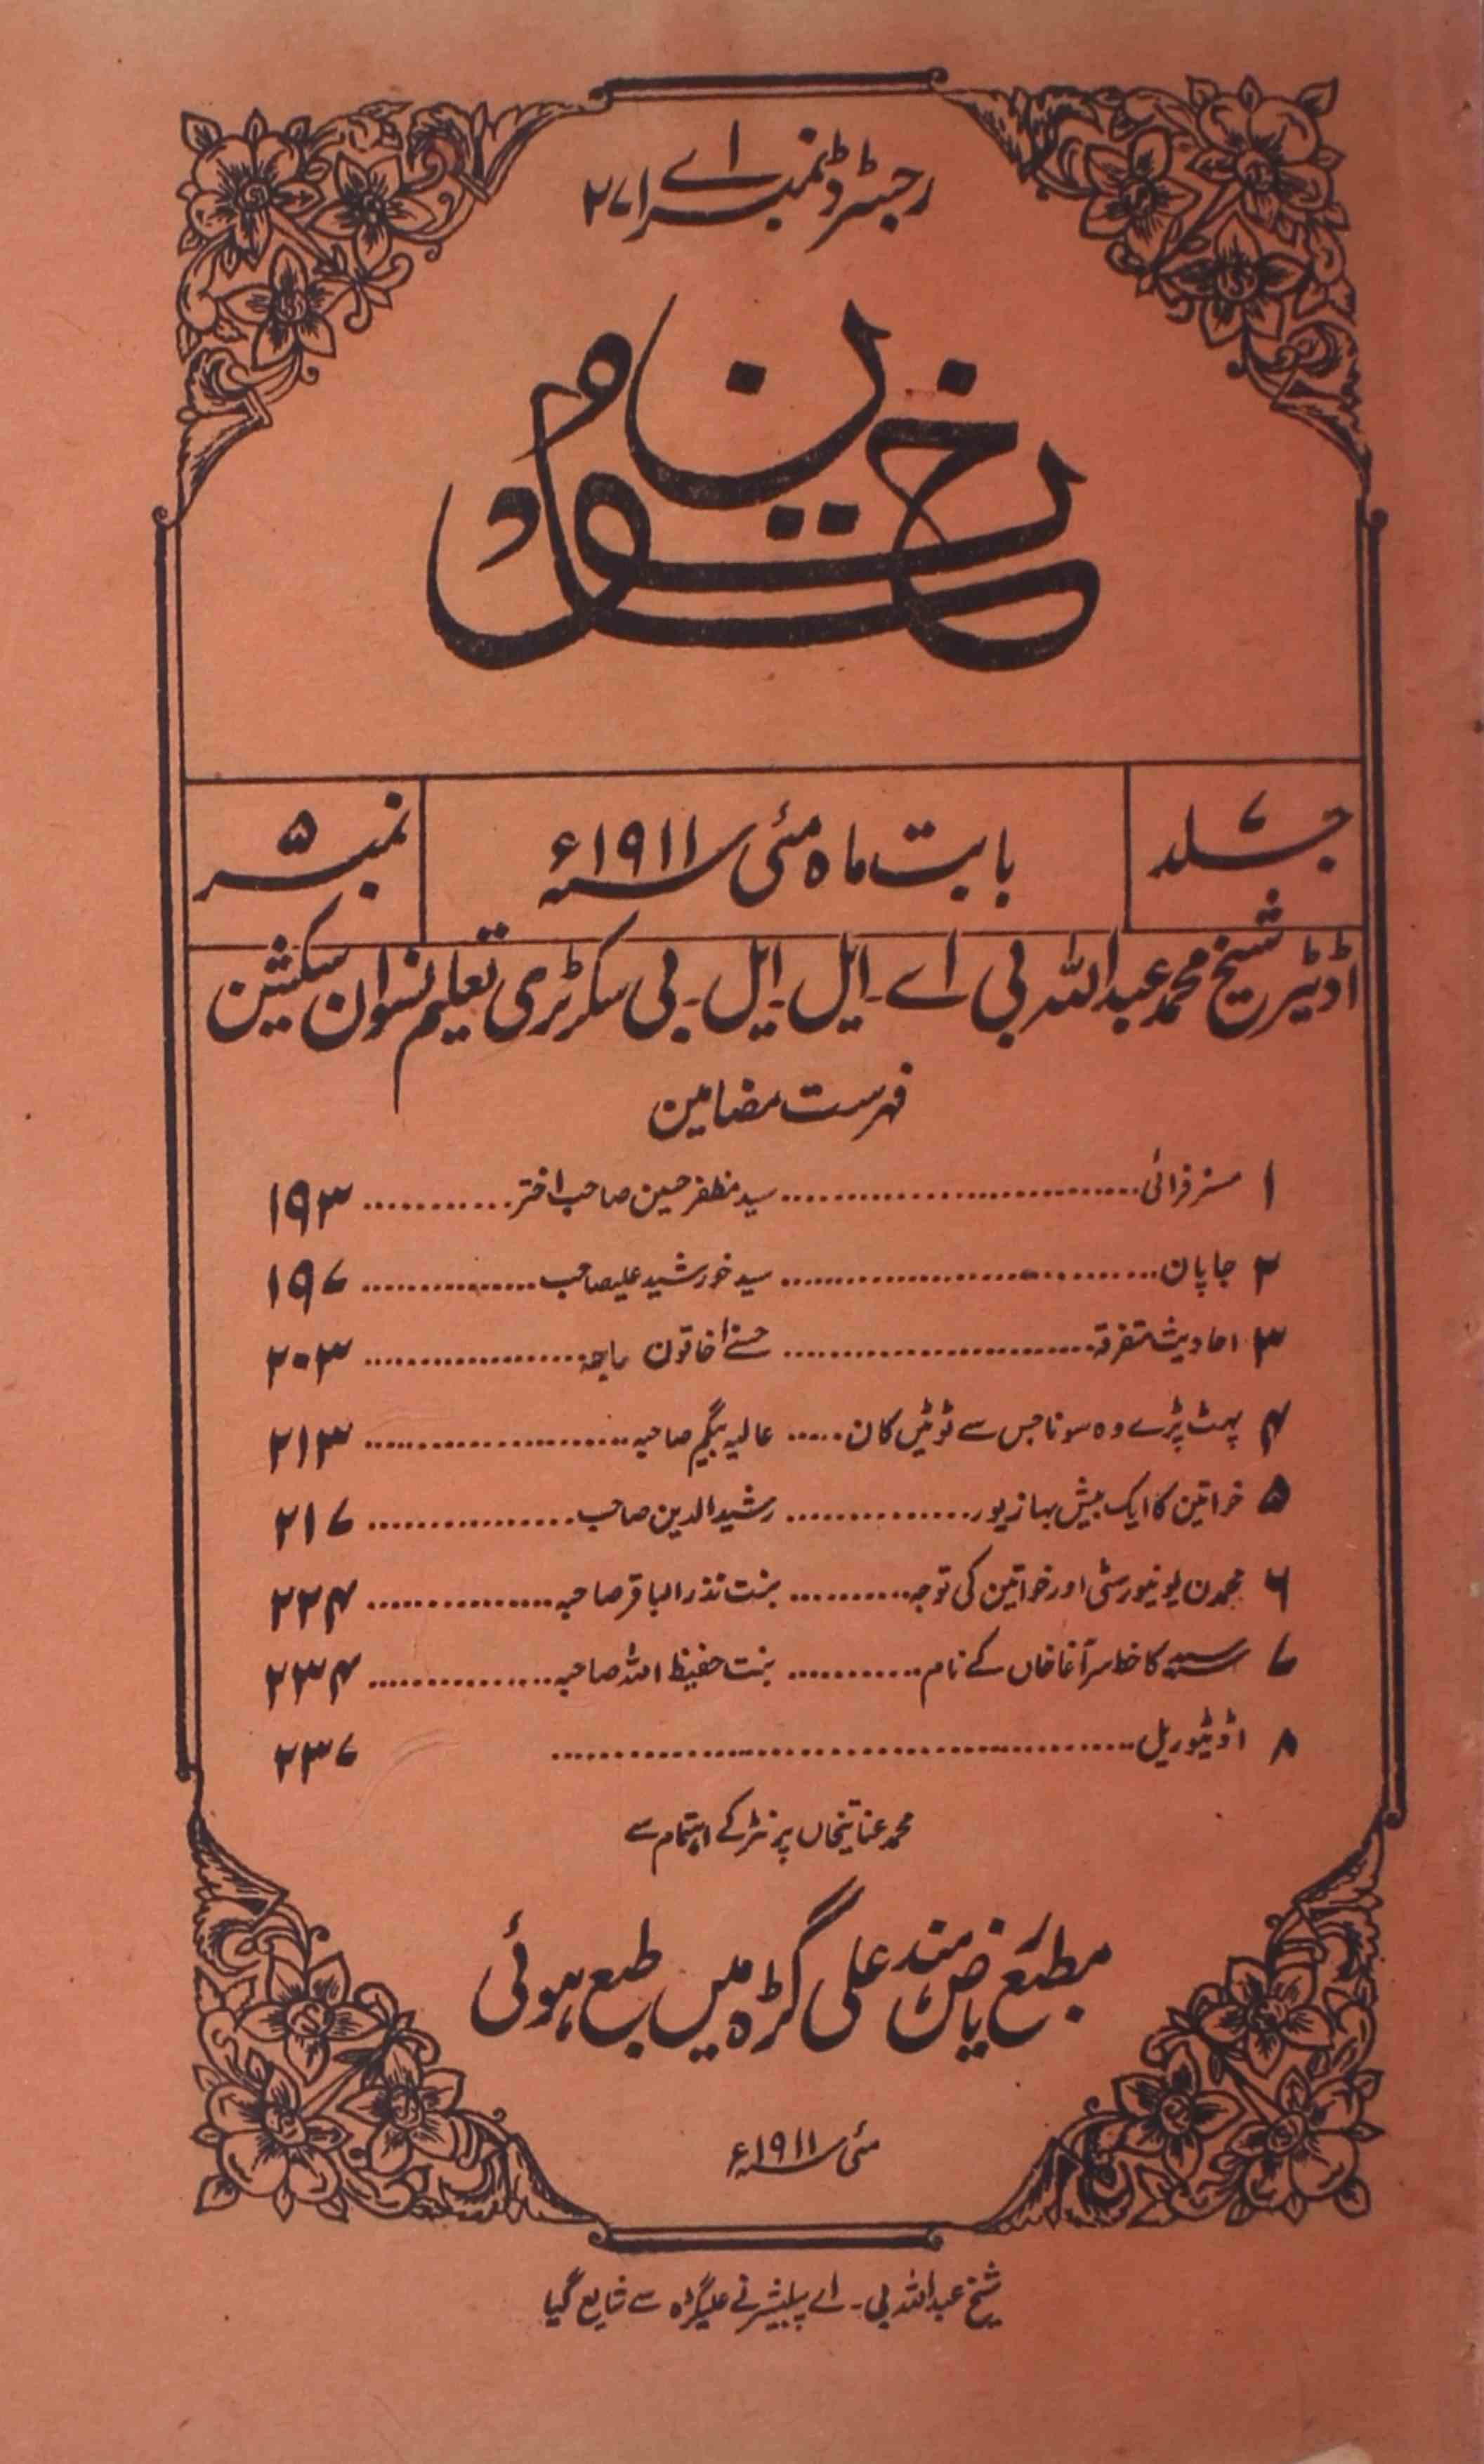 رجسٹرڈ نمبر اے ۲۷۱
خاتون
جلد ۷
بابت ماہ مئی سنہ ۱۹۱۱ء
نمبر ۵
اڈیٹر شیخ محمد عبداللہ بی اے۔ ایل۔ ایل۔ بی سکرٹری تعلیم نسواں سکشن
فہرست مضامین
۱ مسز فرائی ........ سید مظفر حسین صاحب اختر ........ ۱۹۳
۲ جاپان ........ سید خورشید علیصاحب ........ ۱۹۷
۳ احادیث متفرقہ ........ خاتون صاحبہ ........ ۲۰۳
۴ پھٹ پڑے وہ سونا جس سے ٹوٹیں کان ..... عالیہ بیگم صاحبہ ........ ۲۱۳
۵ خواتین کا ایک بیش بہا زیور ........ رشید الدین صاحب ........ ۲۱۷
۶ محمدن یونیورسٹی اور خواتین کی توجہ ........ بنت نذر الباقر صاحبہ ........ ۲۲۴
۷ سرسید کا خط سر آغا خاں کے نام ........ بنت حفیظ اللہ صاحبہ ........ ۲۳۴
۸ اڈیٹوریل ........ ۲۳۷
محمد عنایتخاں پرنٹر کے اہتمام سے
مطبع فیض مند علی گڑہ میں طبع ہوئی
مئی سنہ ۱۹۱۱ء
شیخ عبداللہ بی۔ اے پبلیشر نے علیگڑہ سے شایع کیا